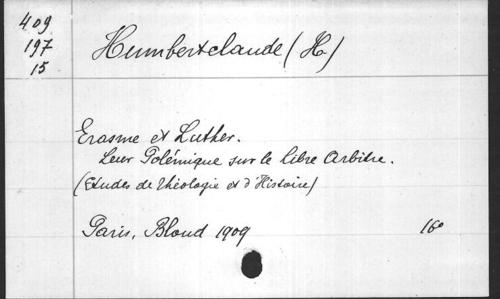 409
197
15
Humbertclaude (H)
Erasme et Luther.
Leur Polémique sur le libre Arbitre.
(Etudes de théologie et d'Histoire)
Paris, Bloud 1909 16°